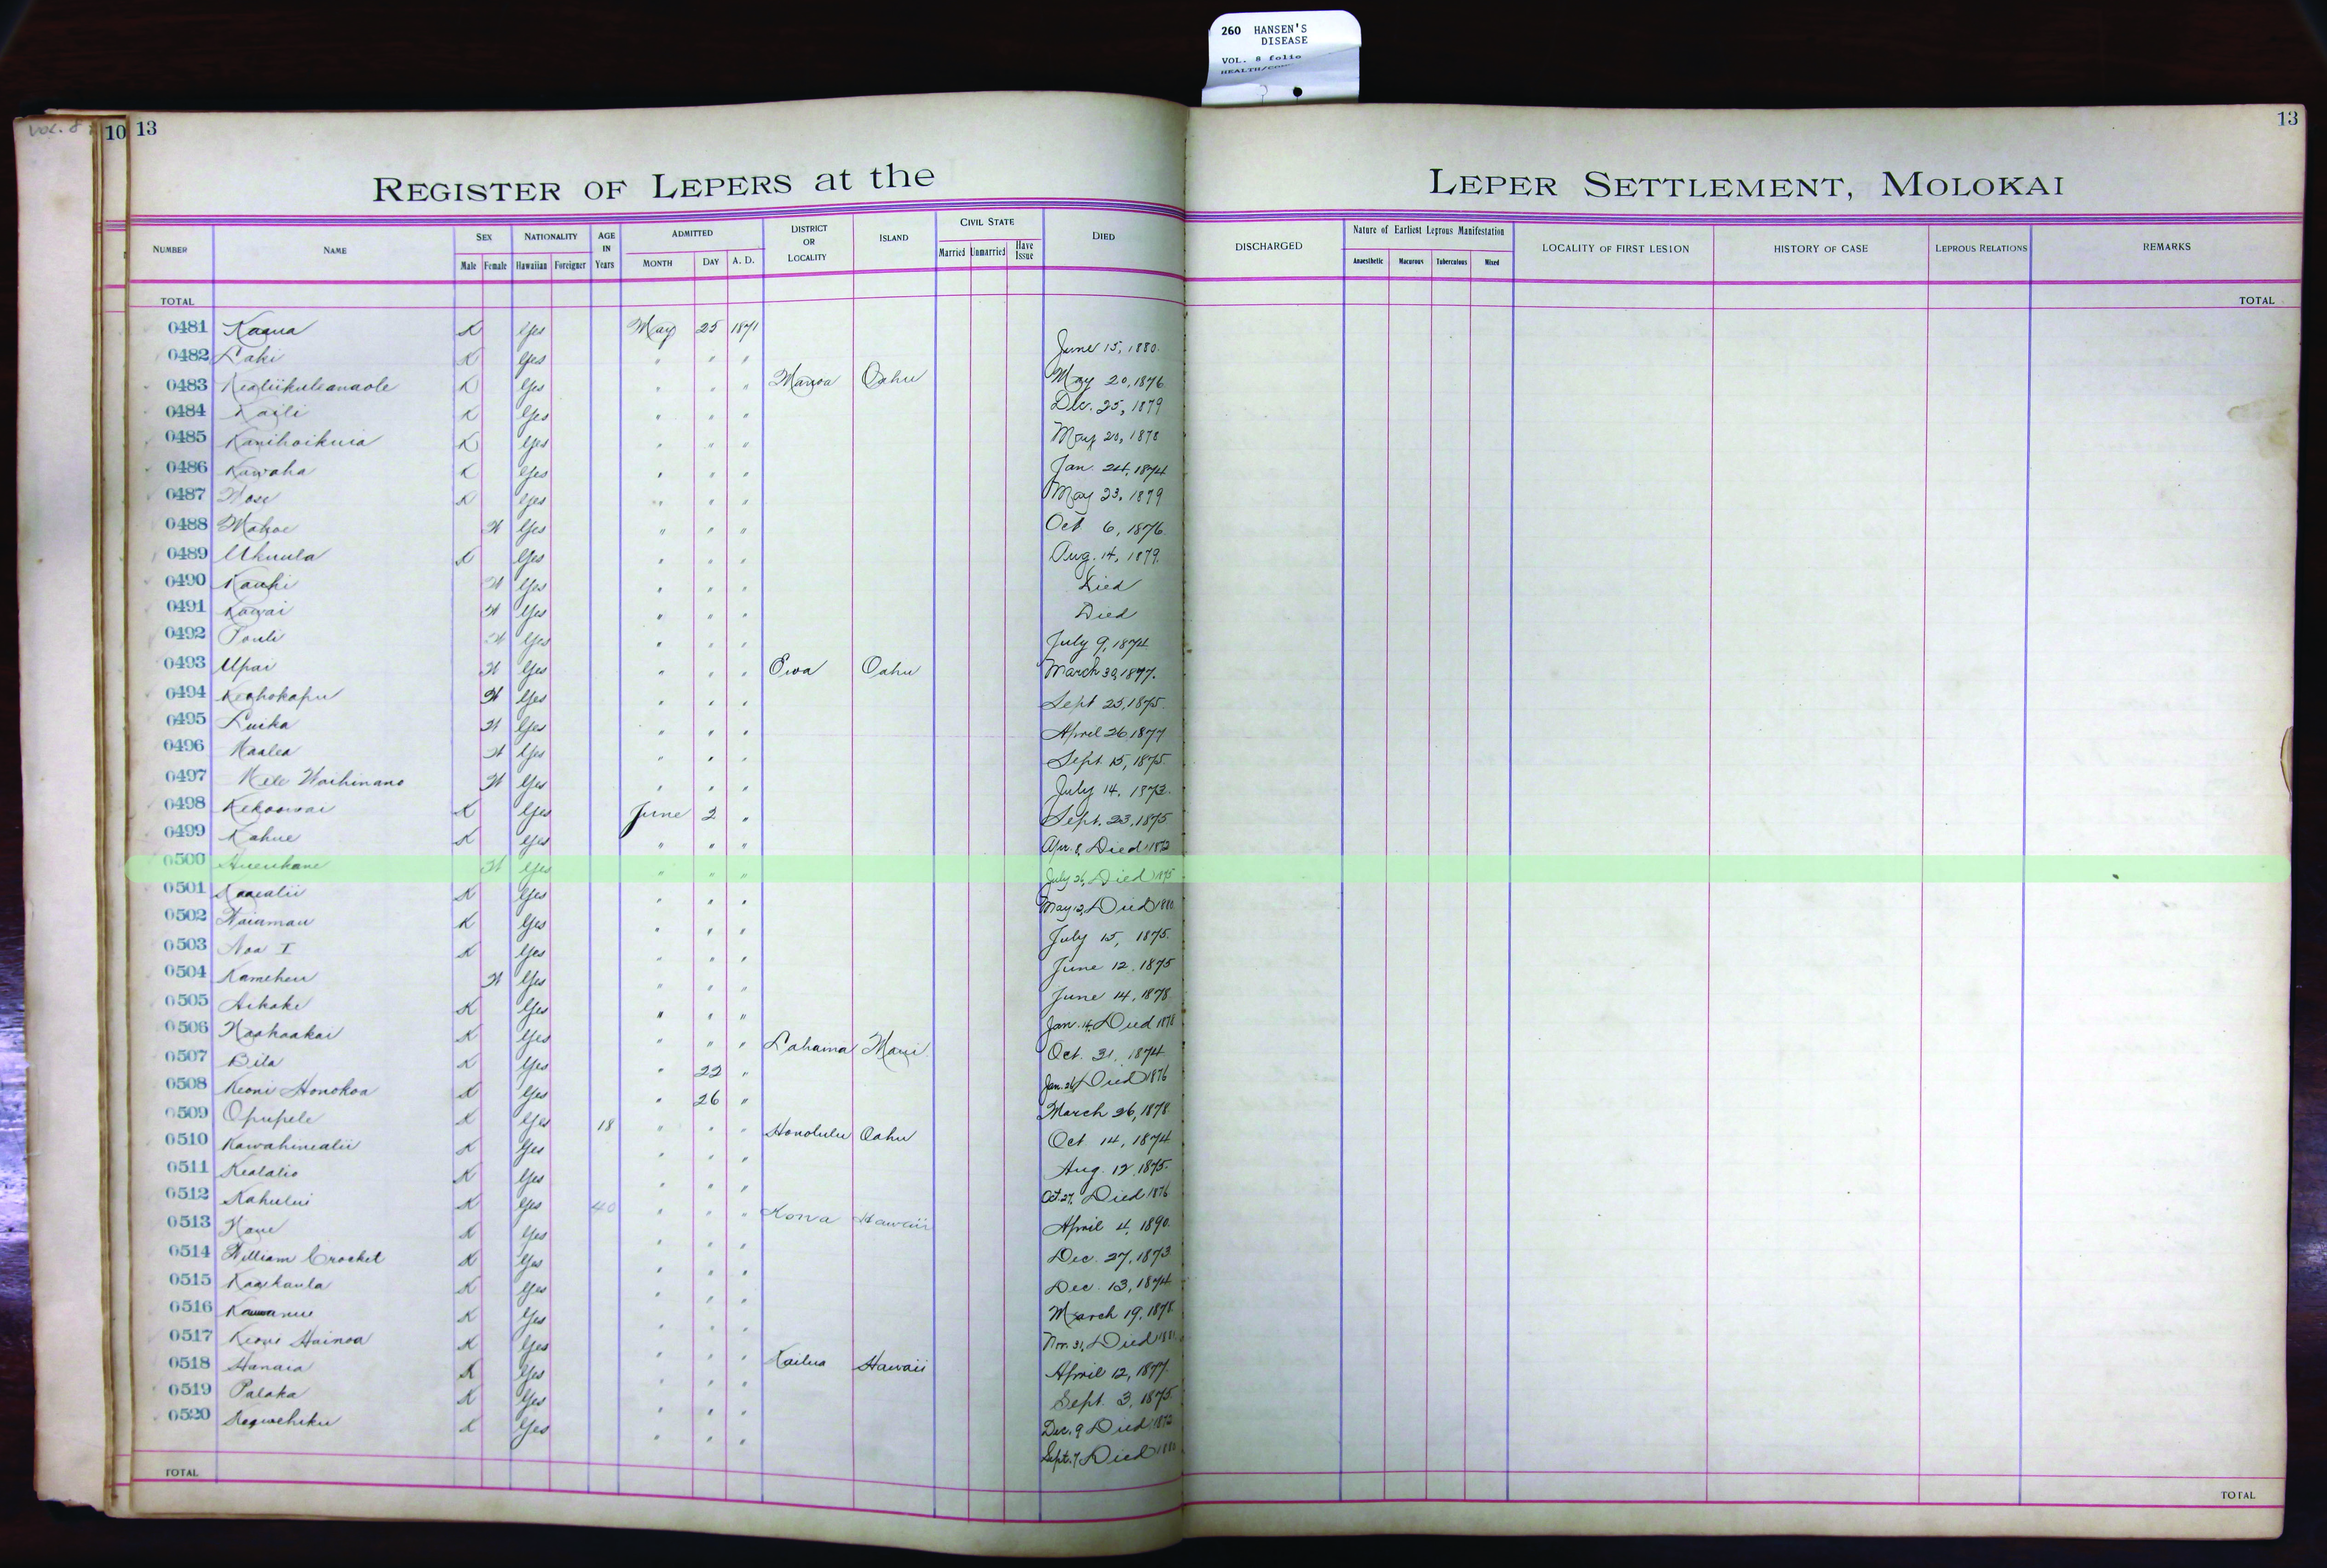 260 HANSEN'S
DISEASE
VOL. 8 folio
VOL. 8
10 13
13
REGISTER OF LEPERS at the LEPER SETTLEMENT, MOLOKAI
NUMBER NAME SEX Male Female NATIONALITY Hawaiian Foreigner AGE IN Years ADMITTED MONTH DAY A. D. DISTRICT OR LOCALITY ISLAND CIVIL STATE Married Unmarried Have Issue DIED DISCHARGED Nature of Earliest Leprous Manifestation Anaesthetic Macurous Tuberculous Mixed LOCALITY OF FIRST LESION HISTORY OF CASE LEPROUS RELATIONS REMARKS
TOTAL TOTAL
0481 Kaaua K Yes May 25 1871
0482 Laki K Yes " " " June 15, 1880.
0483 Kealiikuleanaole K Yes " " " Manoa Oahu May 20, 1876
0484 Kaili K Yes " " " Dec. 25, 1879
0485 Kanihoikuia K Yes " " " May 20, 1878
0486 Kawaha K Yes " " " Jan. 24, 1874
0487 K Yes " " " May 23, 1879
0488 Mahoe W Yes " " " Oct 6, 1876.
0489 Ukuula K Yes " " " Aug. 14, 1879.
0490 Kauhi W Yes " " " Died
0491 Kawai W Yes " " " Died
0492 Pouli W Yes " " " July 9, 1874
0493 Upai W Yes " " " Ewa Oahu March 30, 1877.
0494 Keahokapu W Yes " " " Sept 25, 1875.
0495 Luika W Yes " " " April 26 1877
0496 Maalea W Yes " " " Sept. 15, 1875.
0497 Mele Waihinano W Yes " " " July 14, 1873.
0498 Kekoowai K Yes June 2 " Sept. 23, 1875
0499 Kahue K Yes " " " Apr. 8, Died 1872
0500 W Yes " " " July 26, Died 1875
0501 Kaaealii K Yes " " " May 12, Died 1880
0502 Naiamau K Yes " " " July 15, 1875.
0503 Noa I K Yes " " " June 12, 1875
0504 Kameheu W Yes " " " June 14, 1878
0505 Aikake K Yes " " " Jan. 14, Died 1878
0506 Naahaakai K Yes " " " Lahaina Maui Oct. 31, 1874
0507 Bila K Yes " 22 " Jan. 26, Died 1876
0508 Keoni Honokoa K Yes " 26 " March 26, 1878
0509 Opupele K Yes 18 " " " Honolulu Oahu Oct 14, 1874
0510 Kawahinealii K Yes " " " Aug. 12, 1875.
0511 Kealalio K Yes " " " Oct. 27, Died 1876
0512 Kahului K Yes 40 " " " Kona Hawaii April 4, 1890.
0513 K Yes " " " Dec. 27, 1873
0514 William Crocket K Yes " " " Dec. 13, 1874
0515 Kaaikaula K Yes " " " March 19, 1878
0516 K Yes " " " Nov. 31, Died
0517 Keoni Hainoa K Yes " " " Kailua Hawaii April 12, 1877.
0518 Hanaia K Yes " " " Sept. 3, 1875.
0519 Palaka K Yes " " " Dec. 9 Died 1872
0520 K Yes " " " Sept. 7, Died
TOTAL TOTAL